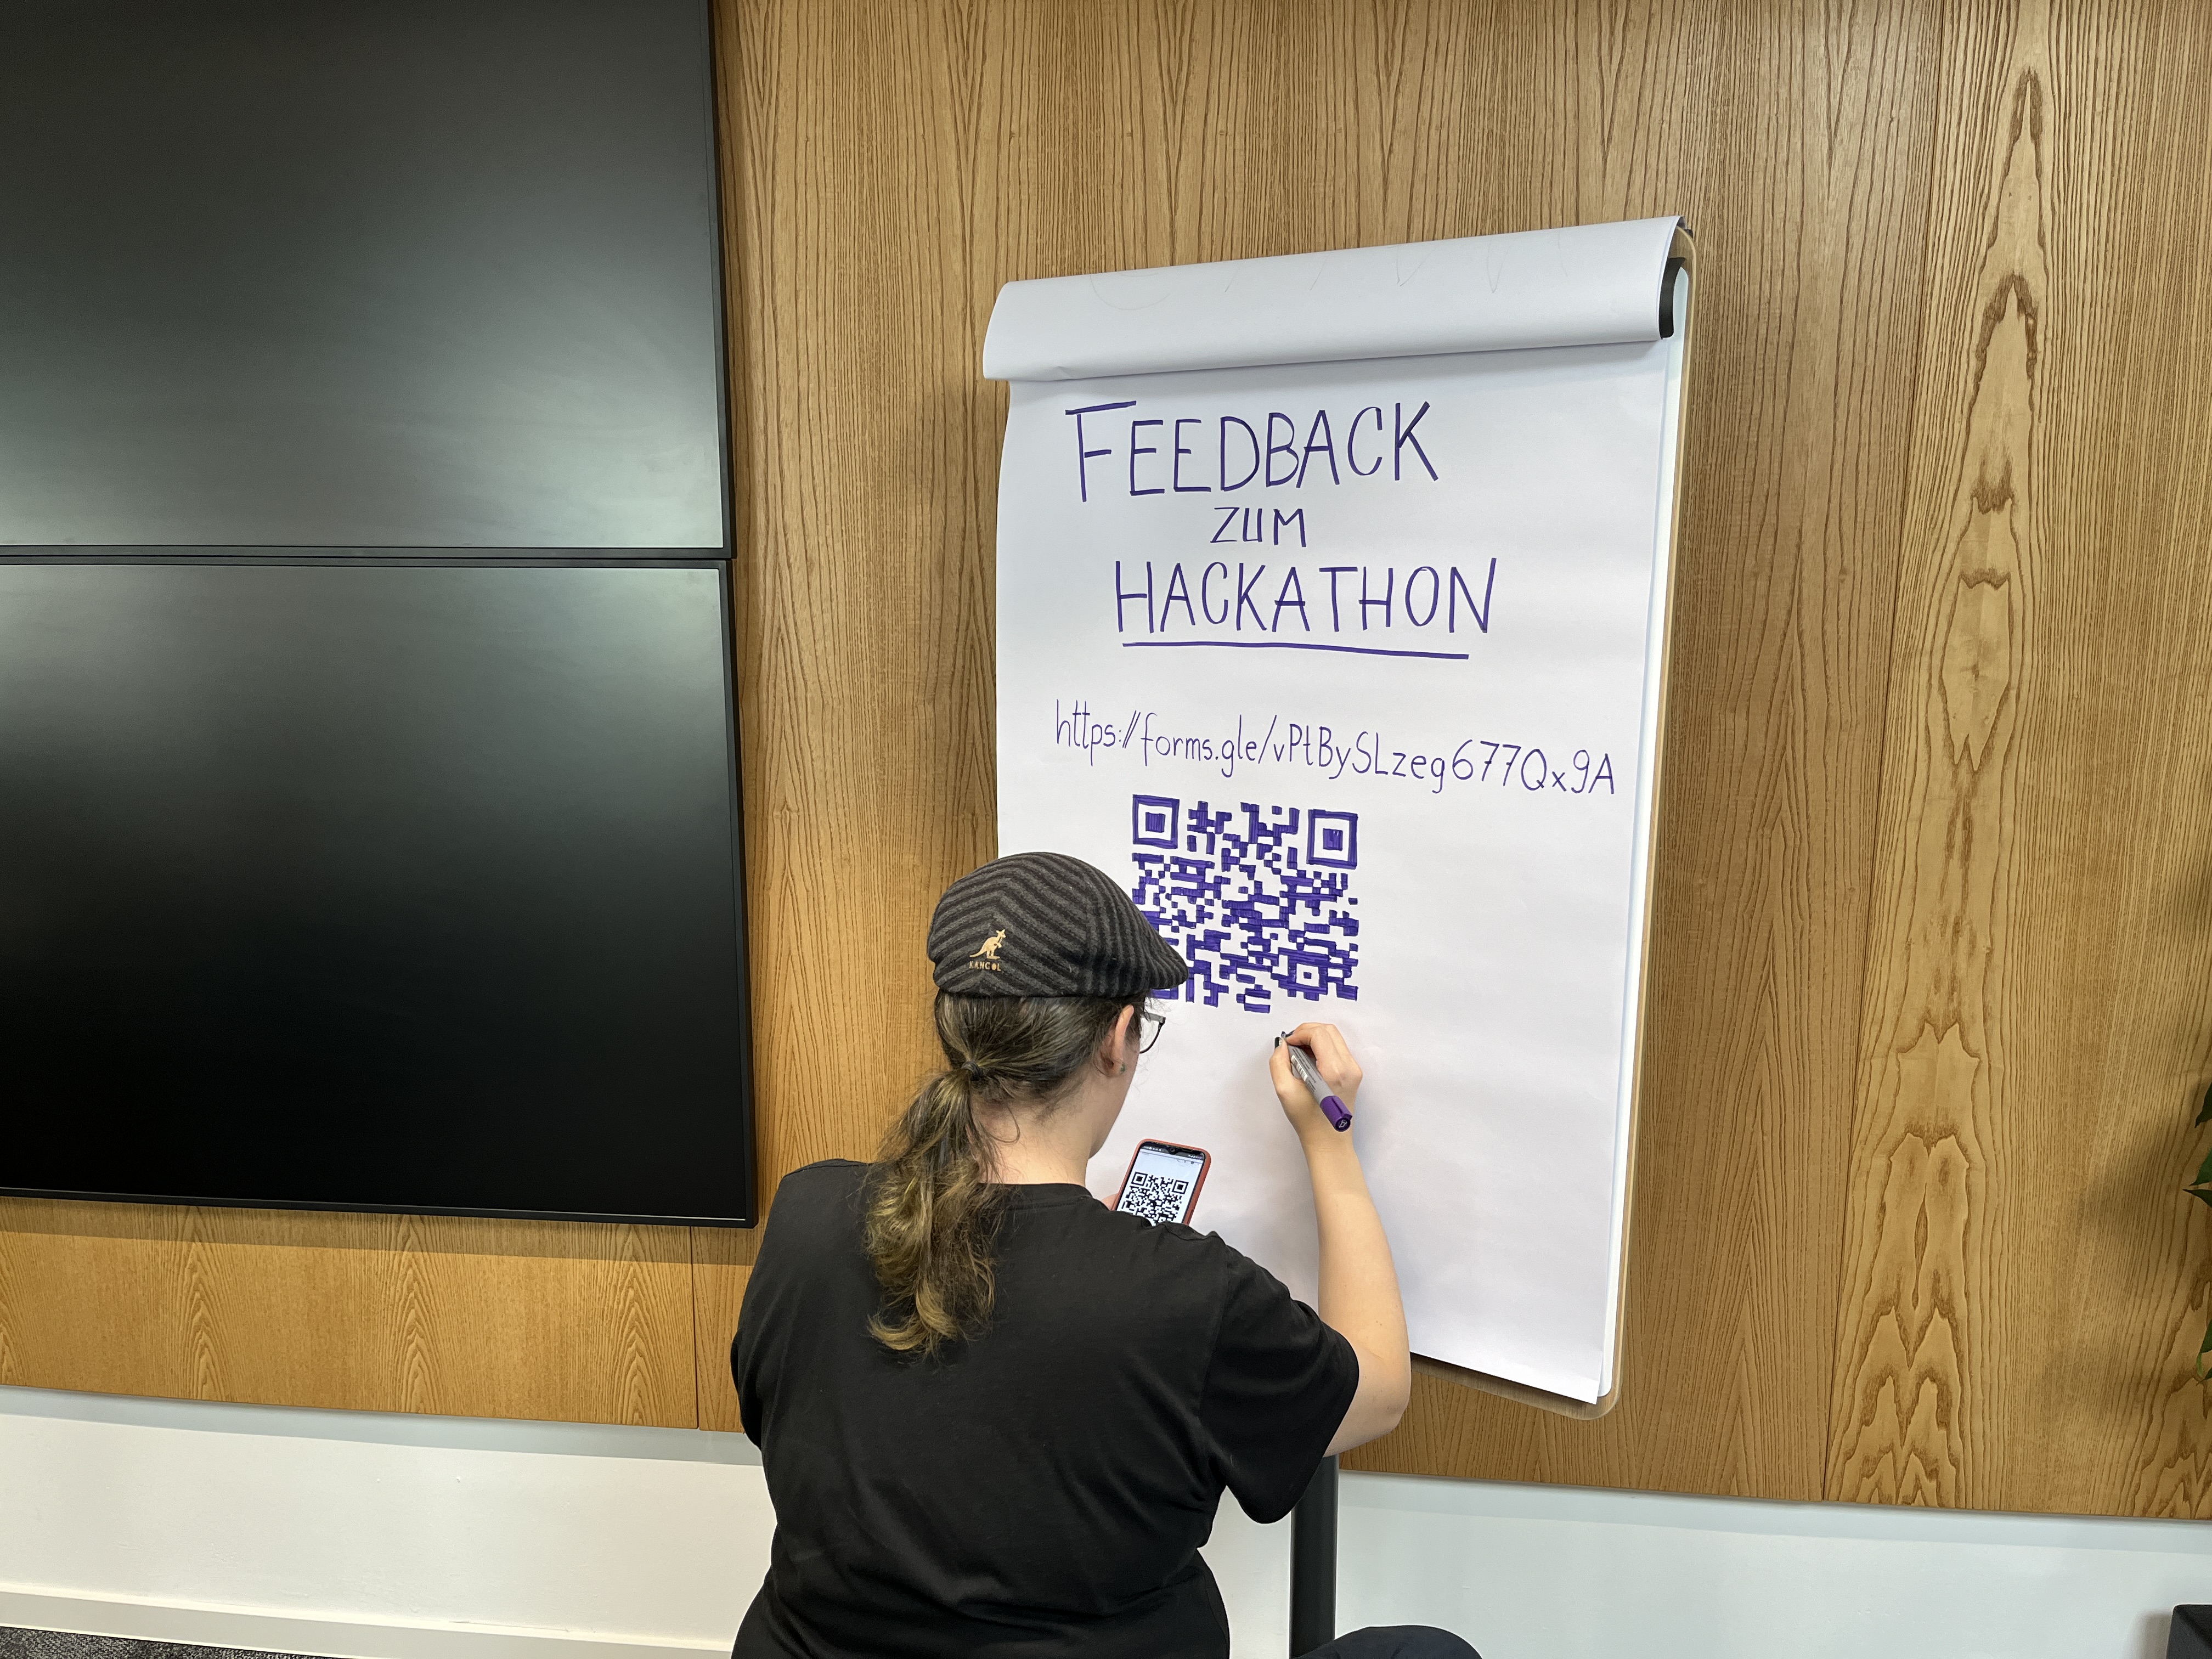 FEEDBACK
ZUM
HACKATHON
https://forms.gle/vPtBySLzeg677Qx9A
KANGOL